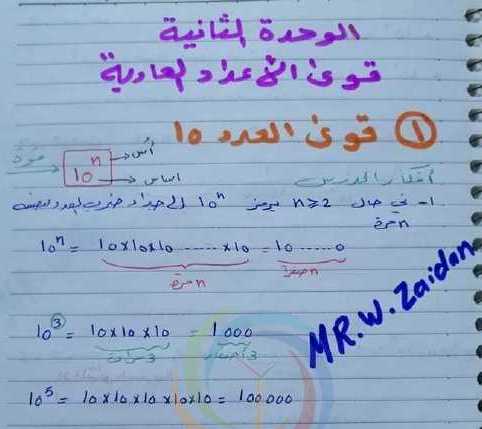 الوحدة الثانية
قوى الأعداد العادية
① قوى العدد 10
قوة 10ⁿ أس
أساس
أفكار الدرس
1- في حال n≥2 يرمز 10ⁿ إلى جداء ضرب العدد بنفسه
n مرة
10ⁿ = 10×10×10 ...... ×10 = 10 ..... 0
n مرة n صفر
10³ = 10×10×10 = 1000
3 مرات 3 أصفار
MR.W.Zaidan
10⁵ = 10×10×10×10×10 = 100000